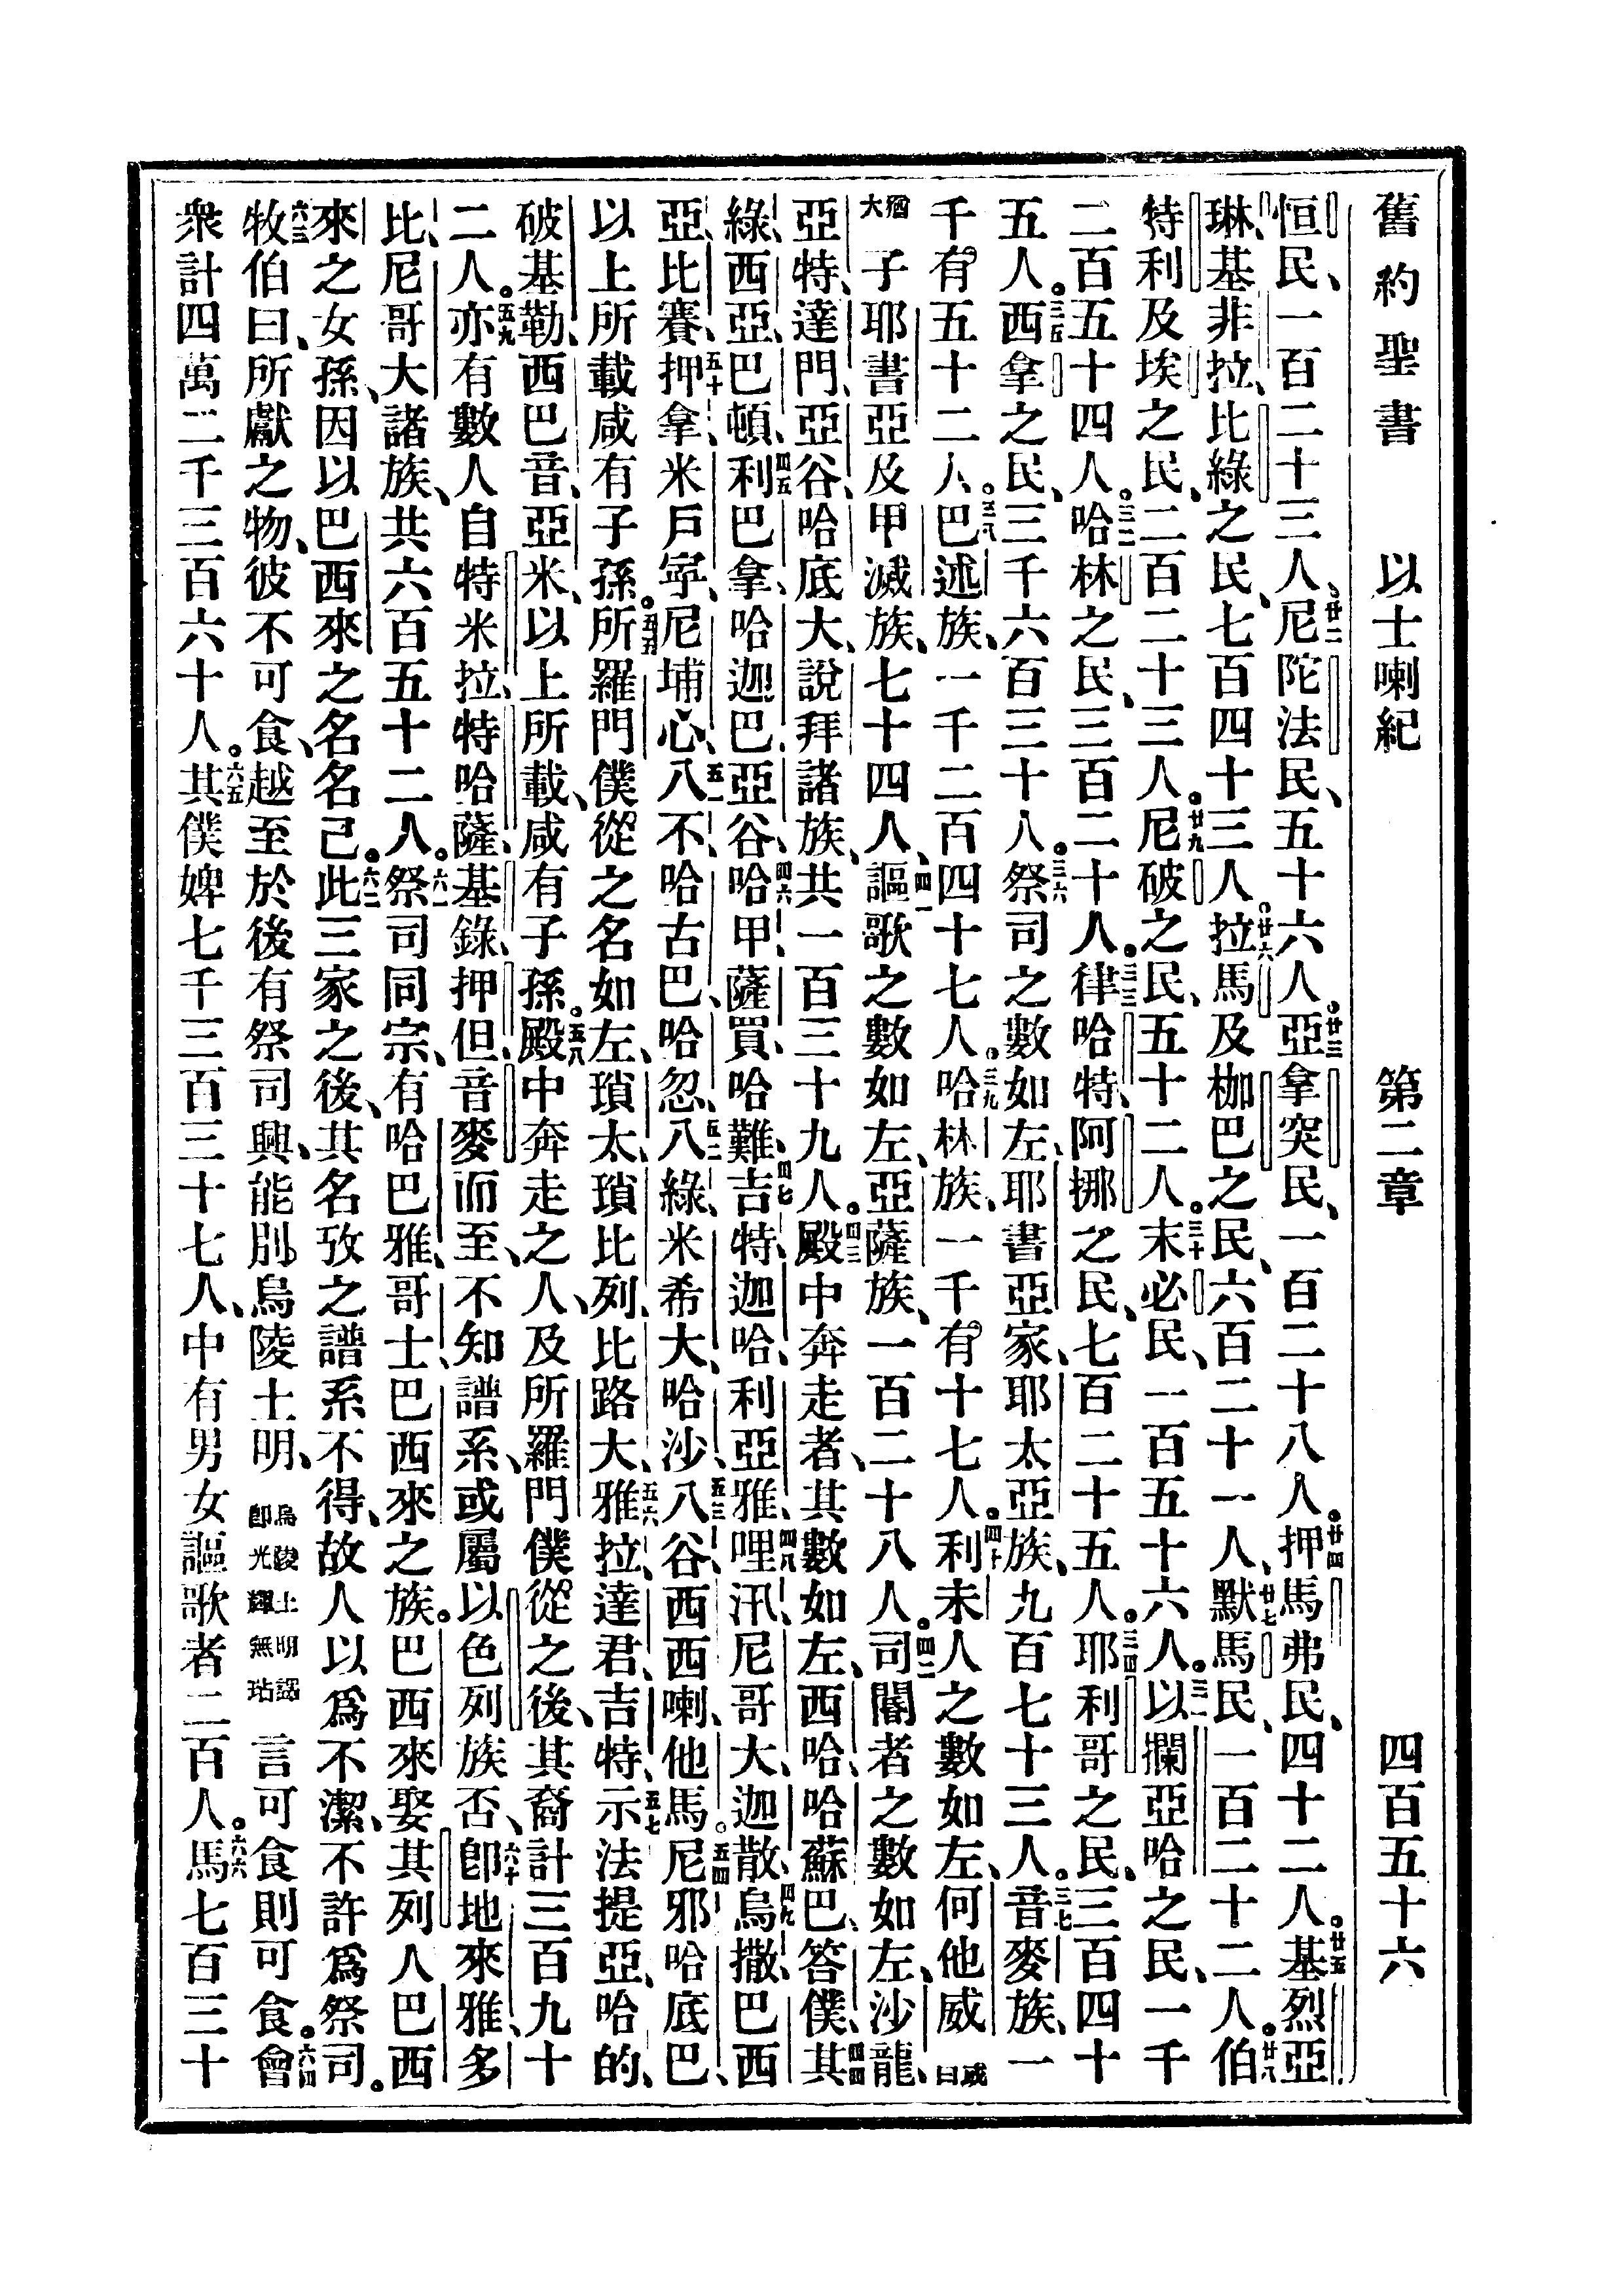 舊約聖書　以士喇紀　第二章　四百五十六
恒民、一百二十三人、廿二尼陀法民、五十六人。廿三亞拿突民、一百二十八人。廿四押馬弗民、四十二人。廿五基烈亞
琳、基非拉、比綠之民、七百四十三人。廿六拉馬及枷巴之民、六百二十一人、廿七默馬民、一百二十二人。廿八伯
特利及埃之民、二百二十三人。廿九尼破之民、五十二人。三十末必民、一百五十六人。三一以攔亞哈之民、一千
二百五十四人。三二哈林之民、三百二十人。三三律哈特、阿挪之民、七百二十五人。三四耶利哥之民、三百四十
五人。三五西拿之民、三千六百三十人。三六祭司之數如左、耶書亞家、耶太亞族、九百七十三人。三七音麥族、一
千有五十二人。三八巴述族、一千二百四十七人。三九哈林族、一千有十七人。四十利未人之數如左、何他威或曰
猶大子耶書亞及甲滅族、七十四人、四一謳歌之數如左、亞薩族、一百二十八人。四二司閽者之數如左、沙龍、
亞特、達門、亞谷、哈底大、說拜諸族、共一百三十九人。四三殿中奔走者、其數如左、西哈、哈蘇巴、答僕、其四四
綠、西亞、巴頓、四五利巴拿、哈迦巴、亞谷、四六哈甲、薩買、哈難、四七吉特、迦哈、利亞雅、四八哩汛、尼哥大、迦散、四九烏撒、巴西
亞、比賽、五十押拿、米戶寧、尼埔心、五一八不、哈古巴、哈忽、五二八綠、米希大、哈沙、五三八谷、西西喇、他馬。五四尼邪、哈底巴、
以上所載、咸有子孫。五五所羅門僕從之名如左、瑣太、瑣比列、比路大、五六雅拉、達君、吉特、五七示法提亞、哈的、
破基勒、西巴音、亞米、以上所載、咸有子孫。五八殿中奔走之人、及所羅門僕從之後、其裔計三百九十
二人。五九亦有數人自特米拉、特哈薩、基錄、押但、音麥而至、不知譜系、或屬以色列族否、六十卽地來雅、多
比、尼哥大諸族、共六百五十二人。六一祭司同宗、有哈巴雅、哥士、巴西來之族。巴西來娶其列人巴西
來之女孫、因以巴西來之名名己。六二此三家之後、其名攷之譜系不得、故人以爲不潔、不許爲祭司。
六三牧伯曰、所獻之物、彼不可食、越至於後有祭司興、能別烏陵土明、烏陵土明譯卽光輝無玷言可食則可食。六四會
衆計四萬二千三百六十人。六五其僕婢七千三百三十七人、中有男女謳歌者二百人。六六馬七百三十